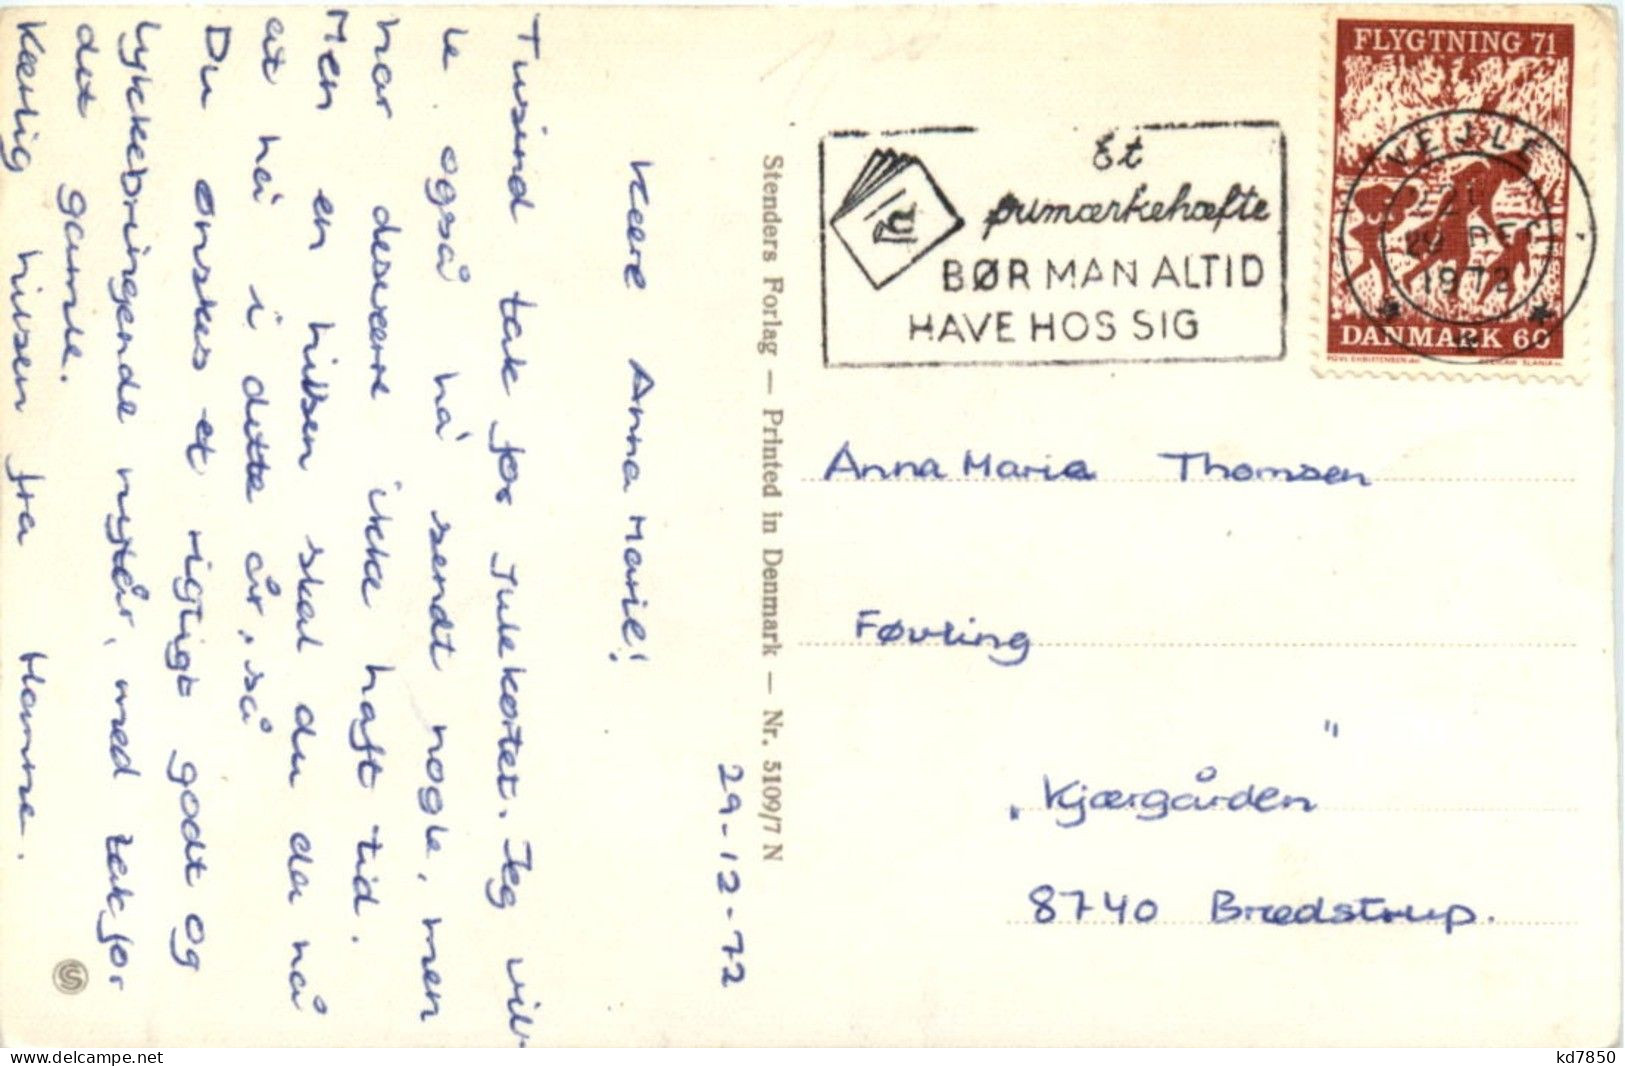 29-12-72
Kære Anna Marie!
Tusind tak for Julekortet. Jeg vil-
le også ha' sendt nogle, men
har desværre ikke haft tid.
Men en hilsen skal du da nå
at hå i dette år, så
Du ønskes et rigtigt godt og
lykkebringende nytår, med tak for
det gamle.
Kærlig hilsen fra Hanne.
Stenders Forlag — Printed in Denmark — Nr. 5109/7 N
Et
frimærkehæfte
BØR MAN ALTID
HAVE HOS SIG
FLYGTNING 71
VEJLE
29 DEC
1972
DANMARK 60
Anna Marie Thomsen
Føvling
"
"Kjærgården
8740 Brædstrup.
www.delcampe.net
kd7850